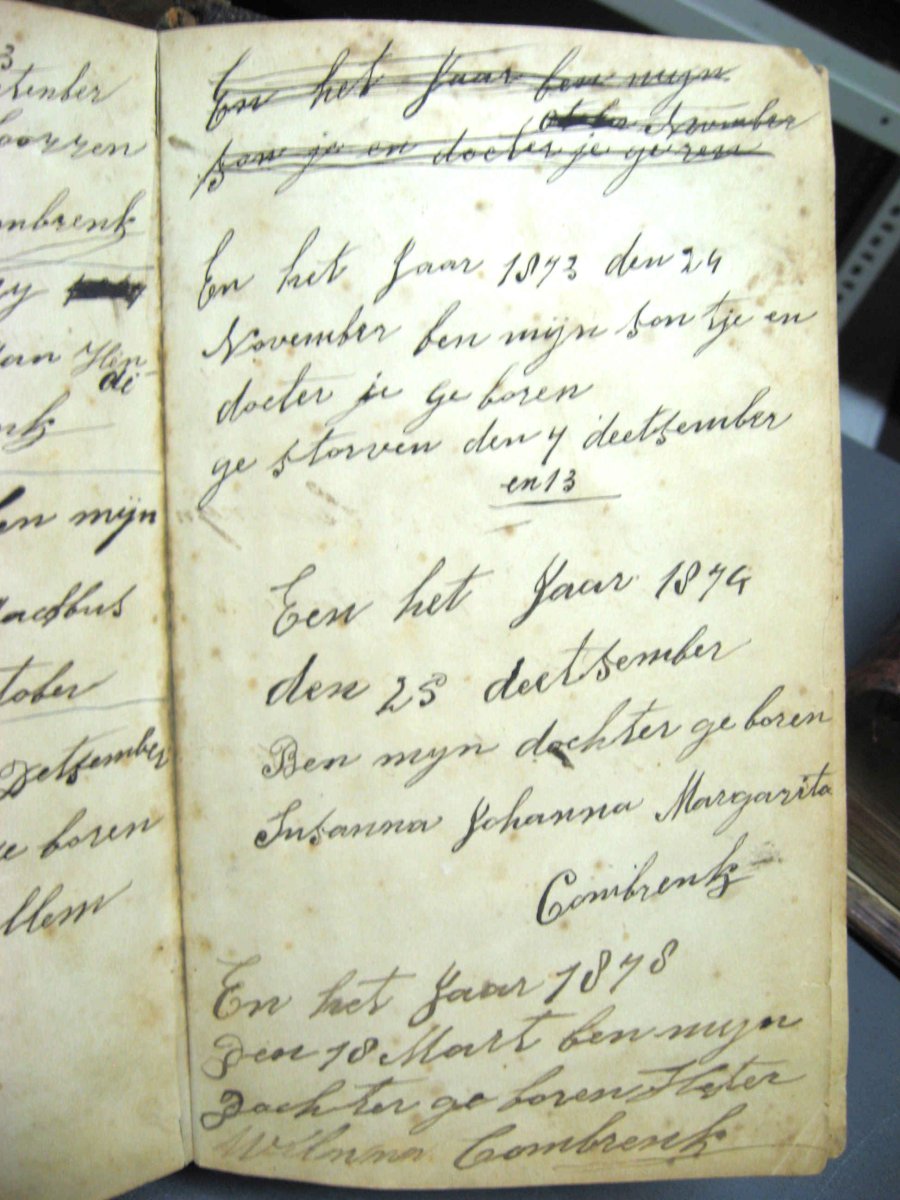 3
tenber
oorren
mbrenk
an Hen
de
nk
en mijn
tober
Detsember
e boren
llem
En het Jaar ben mijn
November
son je en docter je ge ren
En het Jaar 1873 den 24
November ben mijn son tje en
docter je ge boren
ge storven den 4 deetsember
en 13
Een het Jaar 1874
den 23 deetsember
Ben mijn dochter ge boren
Susanna Johanna Margarita
Combrenk
En het Jaar 1878
Den 18 Mart ben mijn
Dochter ge boren Hester
Combrenk